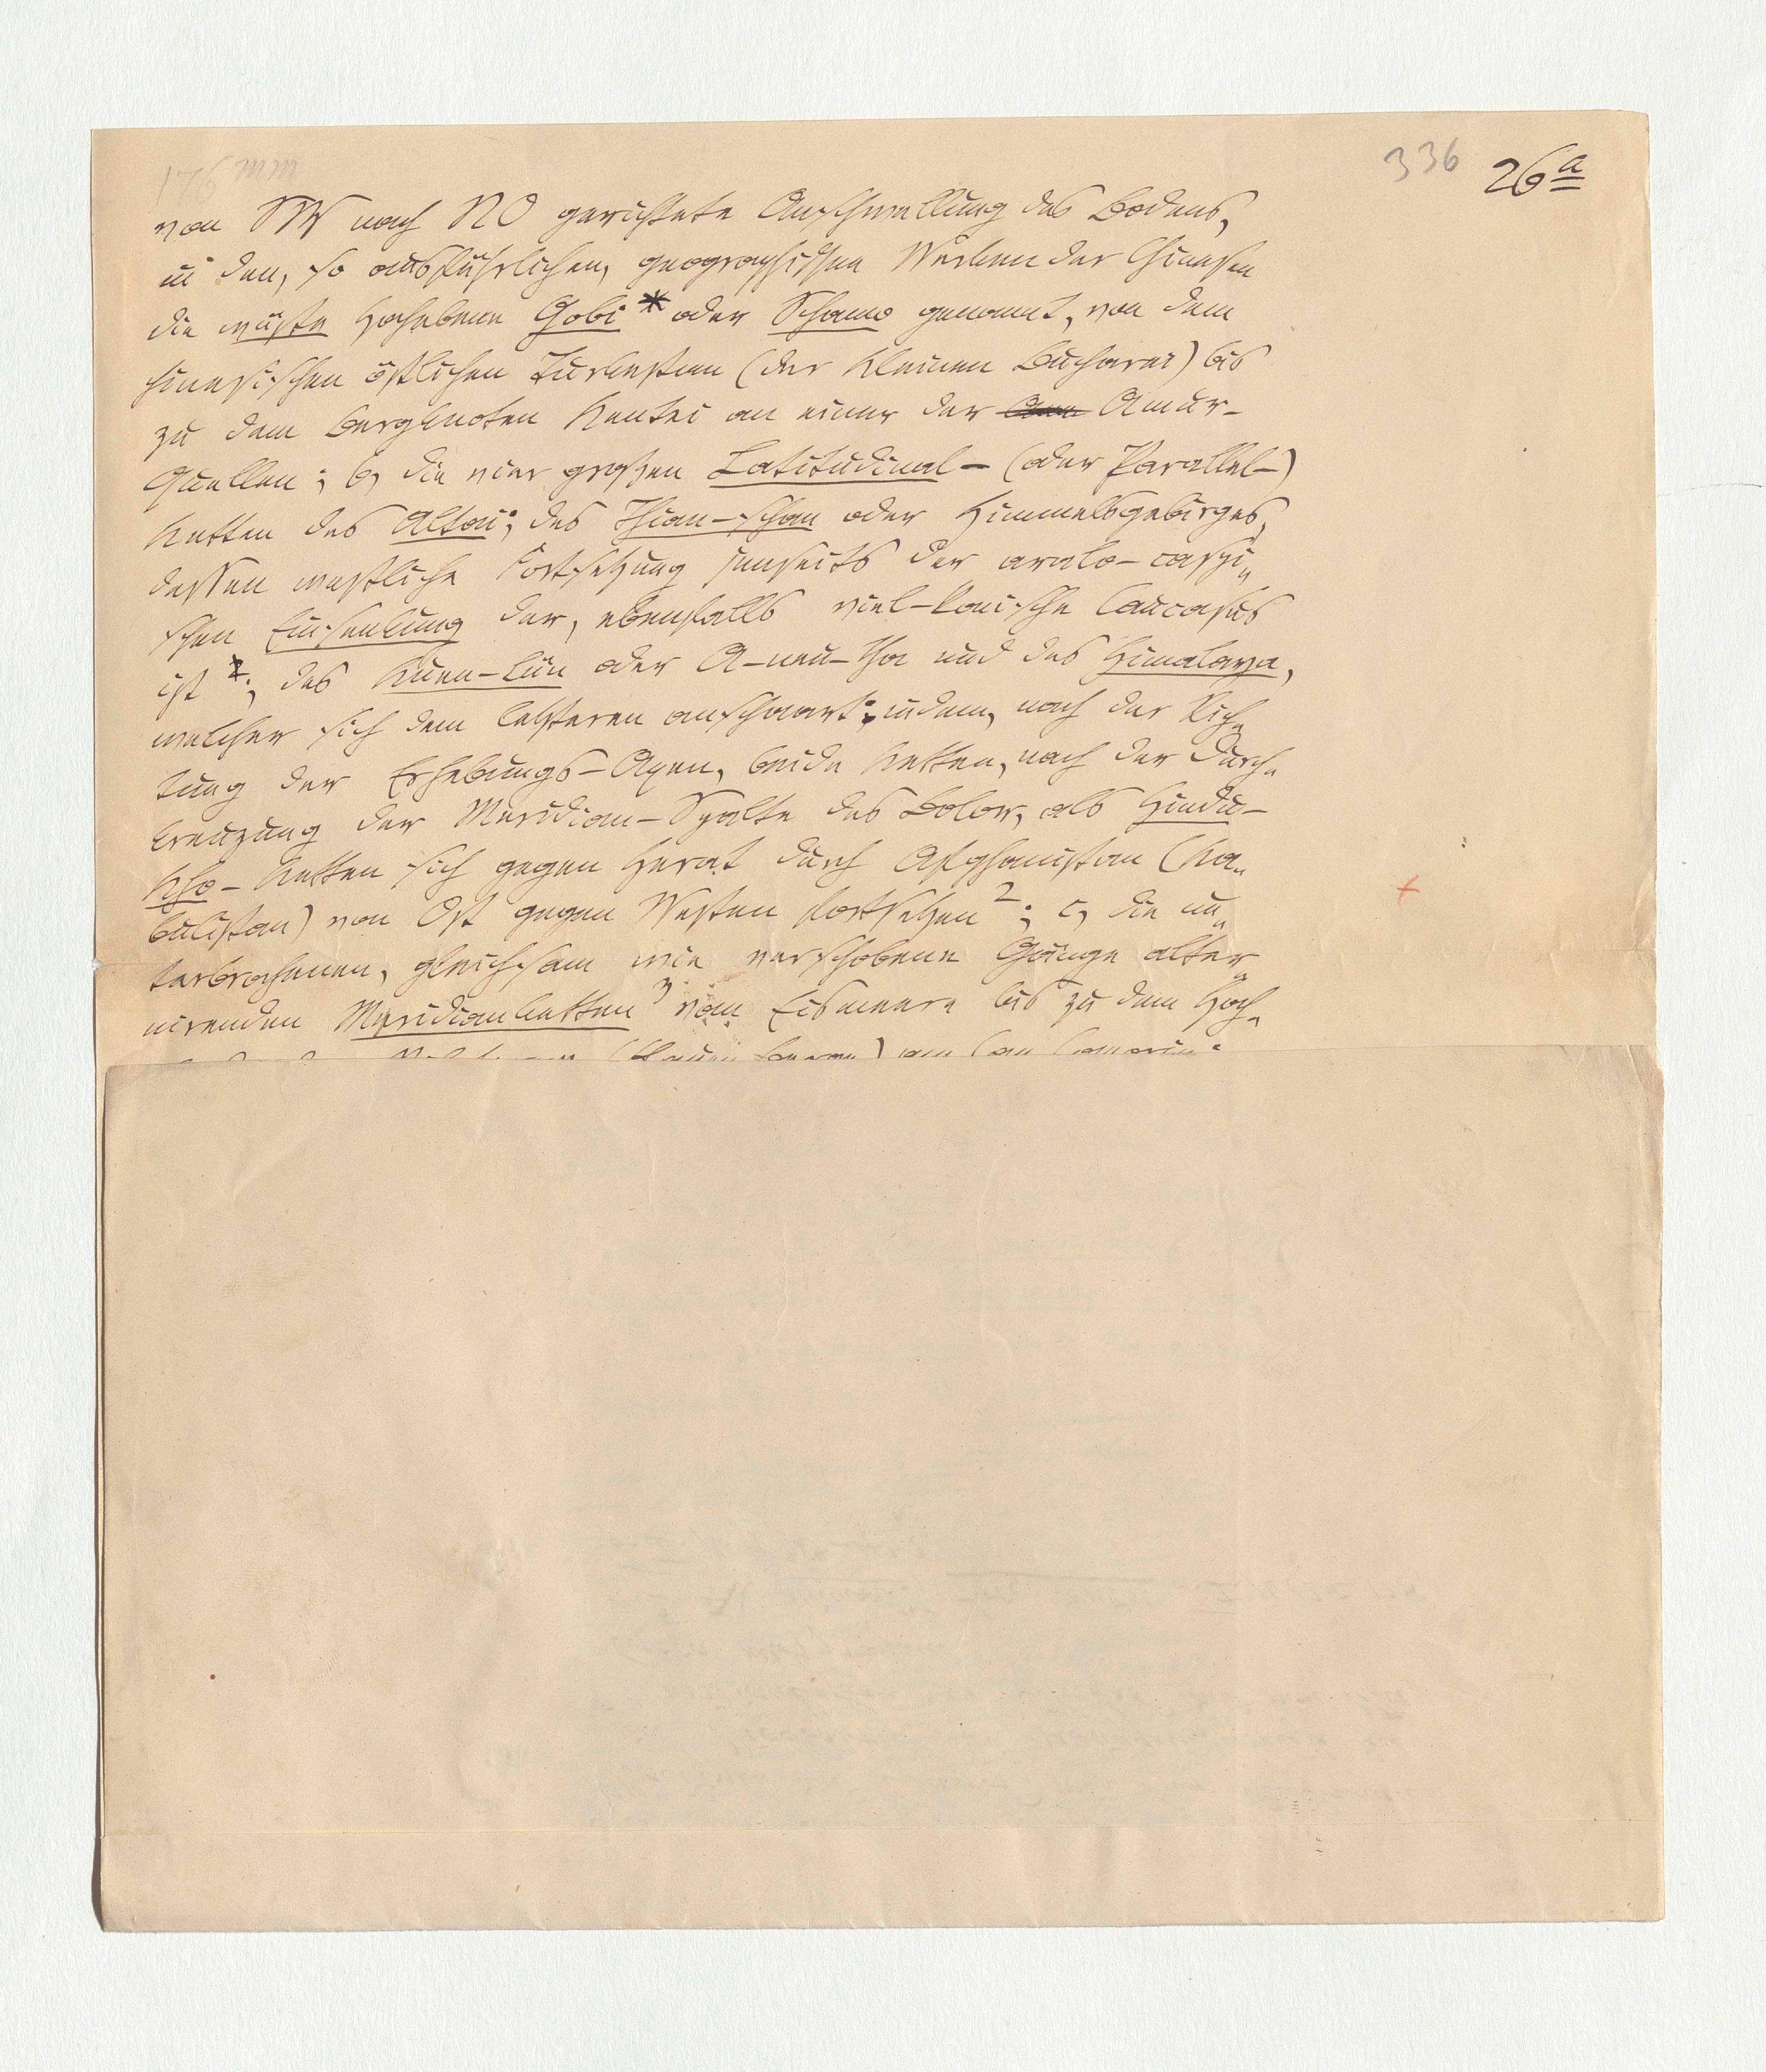 336 26 a
von SW nach NO gerichtete Anschwellung des Bodens,
in den, so ausführlichen, geographischen Werken der Chinesen
die wüste Hochebene Gobi * oder Schamo genannt, von dem
chinesischen östlichen Turkestan (der kleinen Bucharei) bis
zu dem Bergknoten Kentei an einer der Amur-
Quellen; b, die vier großen Latitudinal- (oder Parallel-)
Ketten des Altai; des Thian-schan oder Himmelsgebirges,
dessen westliche Fortsetzung jenseits der aralo-caspi„
schen Einsenkung der, ebenfalls viel-konische Caucasus
ist ; des Kuen-lün oder A-neu-tha und des Himalaya,
welcher sich dem letzteren anschaart: indem, nach der Rich„
tung der Erhebungs-Axen, beide Ketten, nach der Durch„
kreuzung der Meridian-Spalte des Bolor, als Hindu-
Kho-Ketten sich gegen Herat durch Afghanistan (Ka„
bulistan) von Ost gegen Westen fortsetzen 2; c, die un„
terbrochenen, gleichsam wie verschobene Gänge alter„
nirenden Meridianketten 3 vom Eismeere bis zu dem Hoch„
am Cap Comorin: